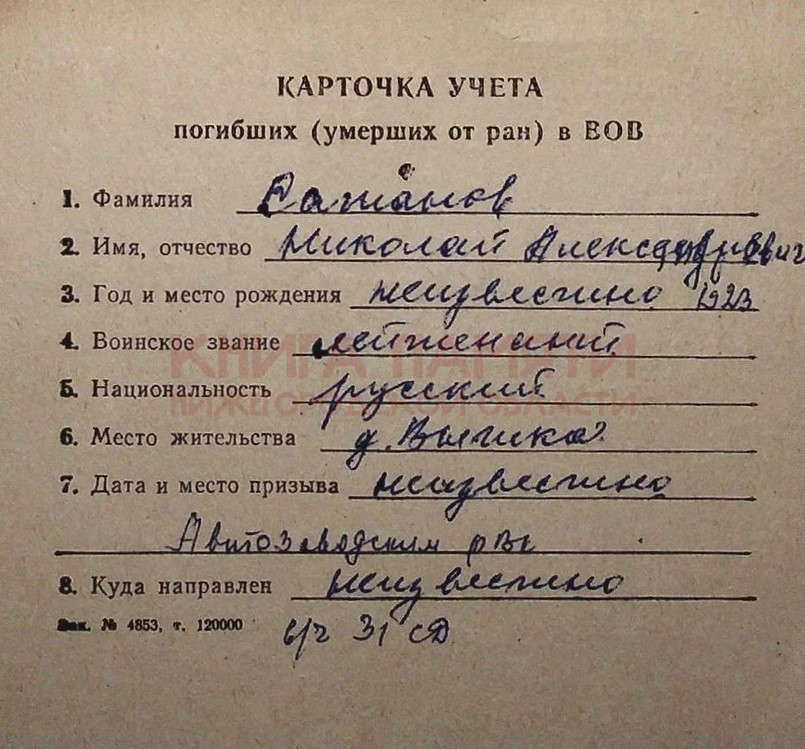 КАРТОЧКА УЧЕТА
погибших (умерших от ран) в ВОВ
1. Фамилия
2. Имя, отчество Николай Александрович
3. Год и место рождения неизвестно 1923
4. Воинское звание лейтенант
КНИГА ПАМЯТИ
5. Национальность русский
НИЖЕГОРОДСКОЙ ОБЛАСТИ
6. Место жительства д.
7. Дата и место призыва неизвестно
Автозаводским рвк
8. Куда направлен неизвестно
Зак. № 4853, т. 120000 в/ч 31 сД